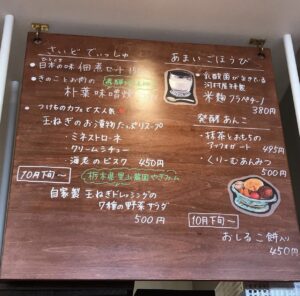 さいどでぃっしゅ
日本の味 佃煮セット
・きのことお肉の
朴葉味噌
・つけものカフェで大人気
玉ねぎのお漬物たっぷりスープ
・ミネストローネ
・クリームシチュー
・海老のビスク 450円
10月下旬〜
栃木県
自家製 玉ねぎドレッシングの
7種の野菜サラダ
500円
あまいごほうび
・乳酸菌が生きている
河村屋特製
米麹フラペチーノ
380円
発酵あんこ
・抹茶とおもちの
アフォガート 495円
・くりーむあんみつ
500円
10月下旬〜
おしるこ 餅入り
450円